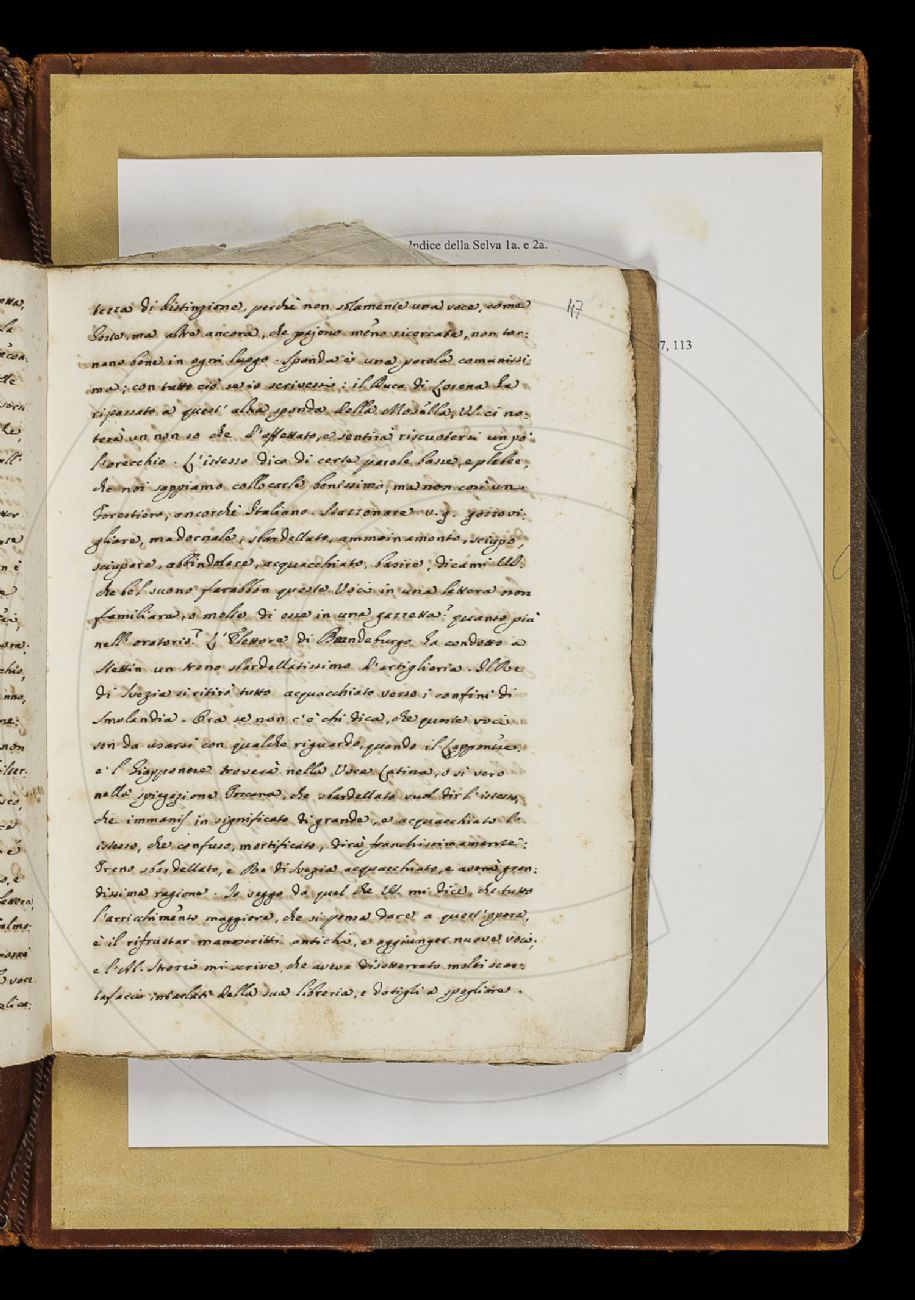 Indice della Selva 1a. e 2a.
7, 113
47
tezza di distinzione, perchè non solamente una voce, come
Oste, ma altre ancora, che paiono meno ricercate, non tor:
nano bene in ogni luogo. Sponda è una parola comunissi:
ma; con tutto ciò se io scrivessi: il Duca di Lorena ha
ripassato a quest' altra sponda della Mosella, VS. ci no:
terà un non so che d'affettato, e sentirà riscuotersi un pò
l'orecchio. L'istesso dico di certe parole basse, e plebee,
che noi sappiamo collocarle benissimo, ma non così un
Forestiero, ancorchè Italiano. Stazzonare v.g. gozzovi:
gliare, madornale, sbardellato, ammoinamento, sciupo,
sciupare, abbindolare, acquacchiato, basire; dicami VS.
che bel suono farebbon queste Voci in una lettera non
familiare, o molte di esse in una gazzetta? quanto più
nell' oratorio? L' Elettore di Brandeburgo ha condotto a
Stettin un treno sbardellatissimo d'artiglieria. Il Re
di Svezia si ritirò tutto acquacchiato verso i confini di
Smolandia. Ora se non c'è chi dica, che queste voci
son da usarsi con qualche riguardo, quando il Lappone,
e 'l Giapponese troverà nella Voce Latina, o si vero
nella spiegazione Toscana, che sbardellato vuol dir l'istesso,
che immanis in significato di grande, e acquacchiato l'
istesso, che confuso, mortificato, dirà franchissimamente:
Treno sbardellato, e Re di Svezia acquacchiato, e averà gran:
dissima ragione. Io veggo da quel che VS. mi dice, che tutto
l'arricchimento maggiore, che si pensa dare a quest' opera,
è il rifrustar manoscritti antichi, e aggiunger nuove voci.
e l'Al. Storia mi scrive, che aveva disotterrato molti scar:
tafacci intarlati della sua libreria, e dotigli a spogliare.